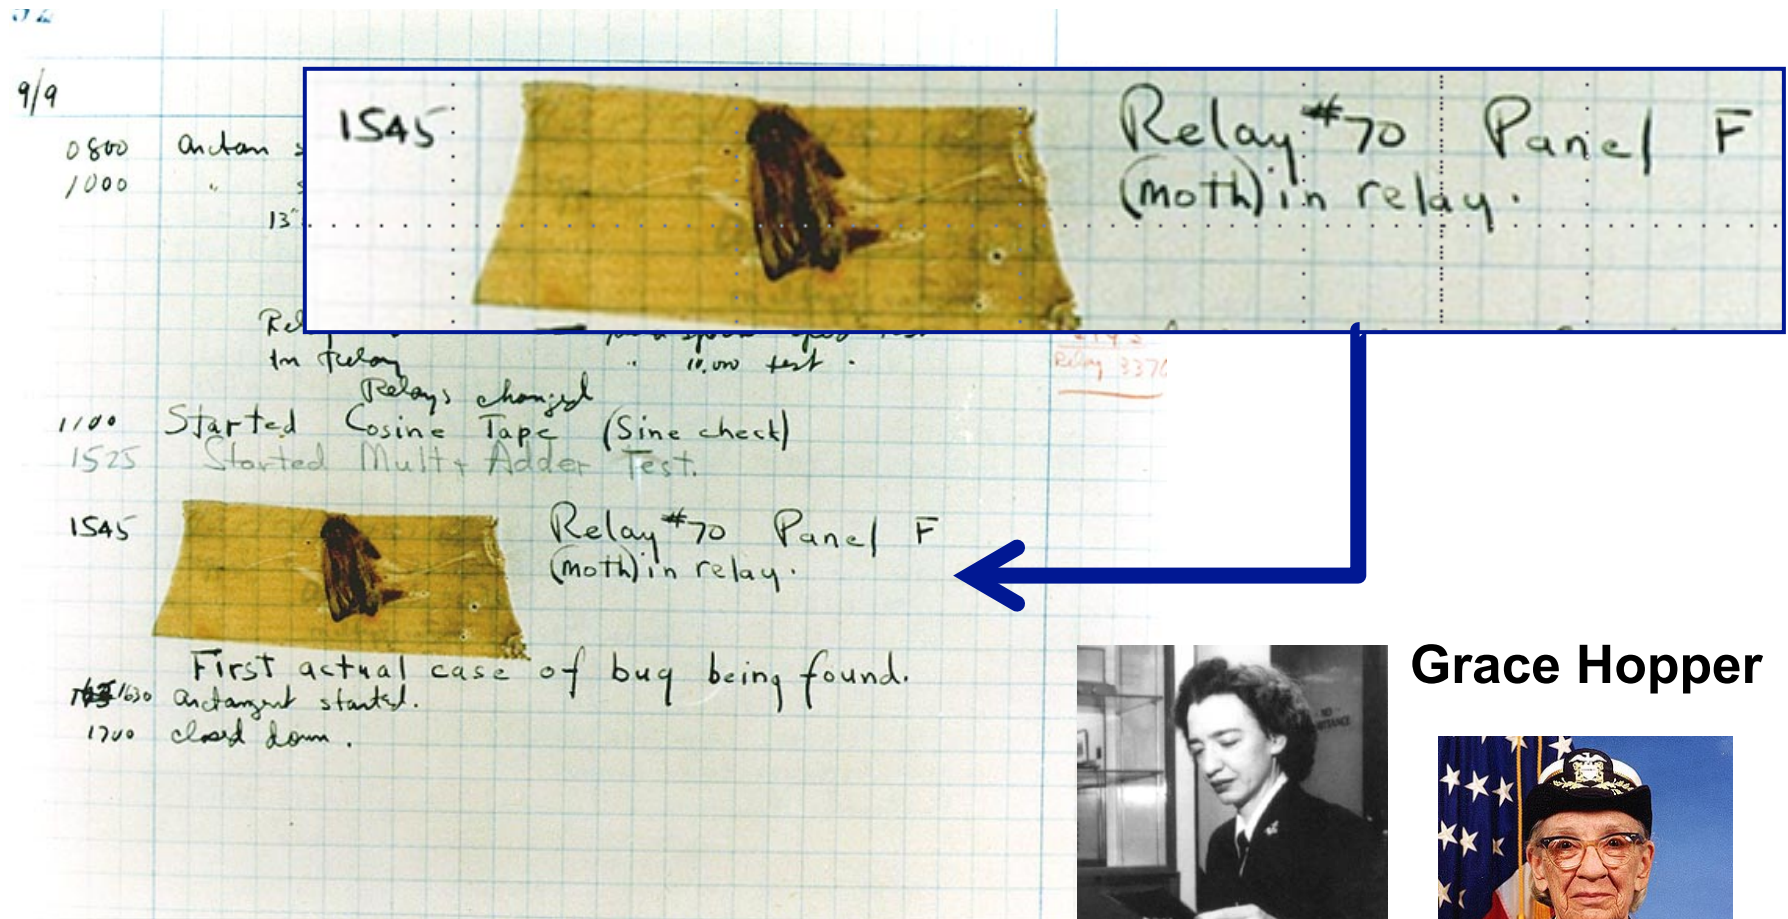 9/9
0800 arctan
1000 "
13"
1545 Relay #70 Panel F
(moth) in relay.
in relay " 10.000 test .
Relay 3370
Relays changed
1100 Started Cosine Tape (Sine check)
1525 Started Mult + Adder Test.
1545 Relay #70 Panel F
(moth) in relay.
First actual case of bug being found.
1630 arctangent started.
1700 closed down .
Grace Hopper